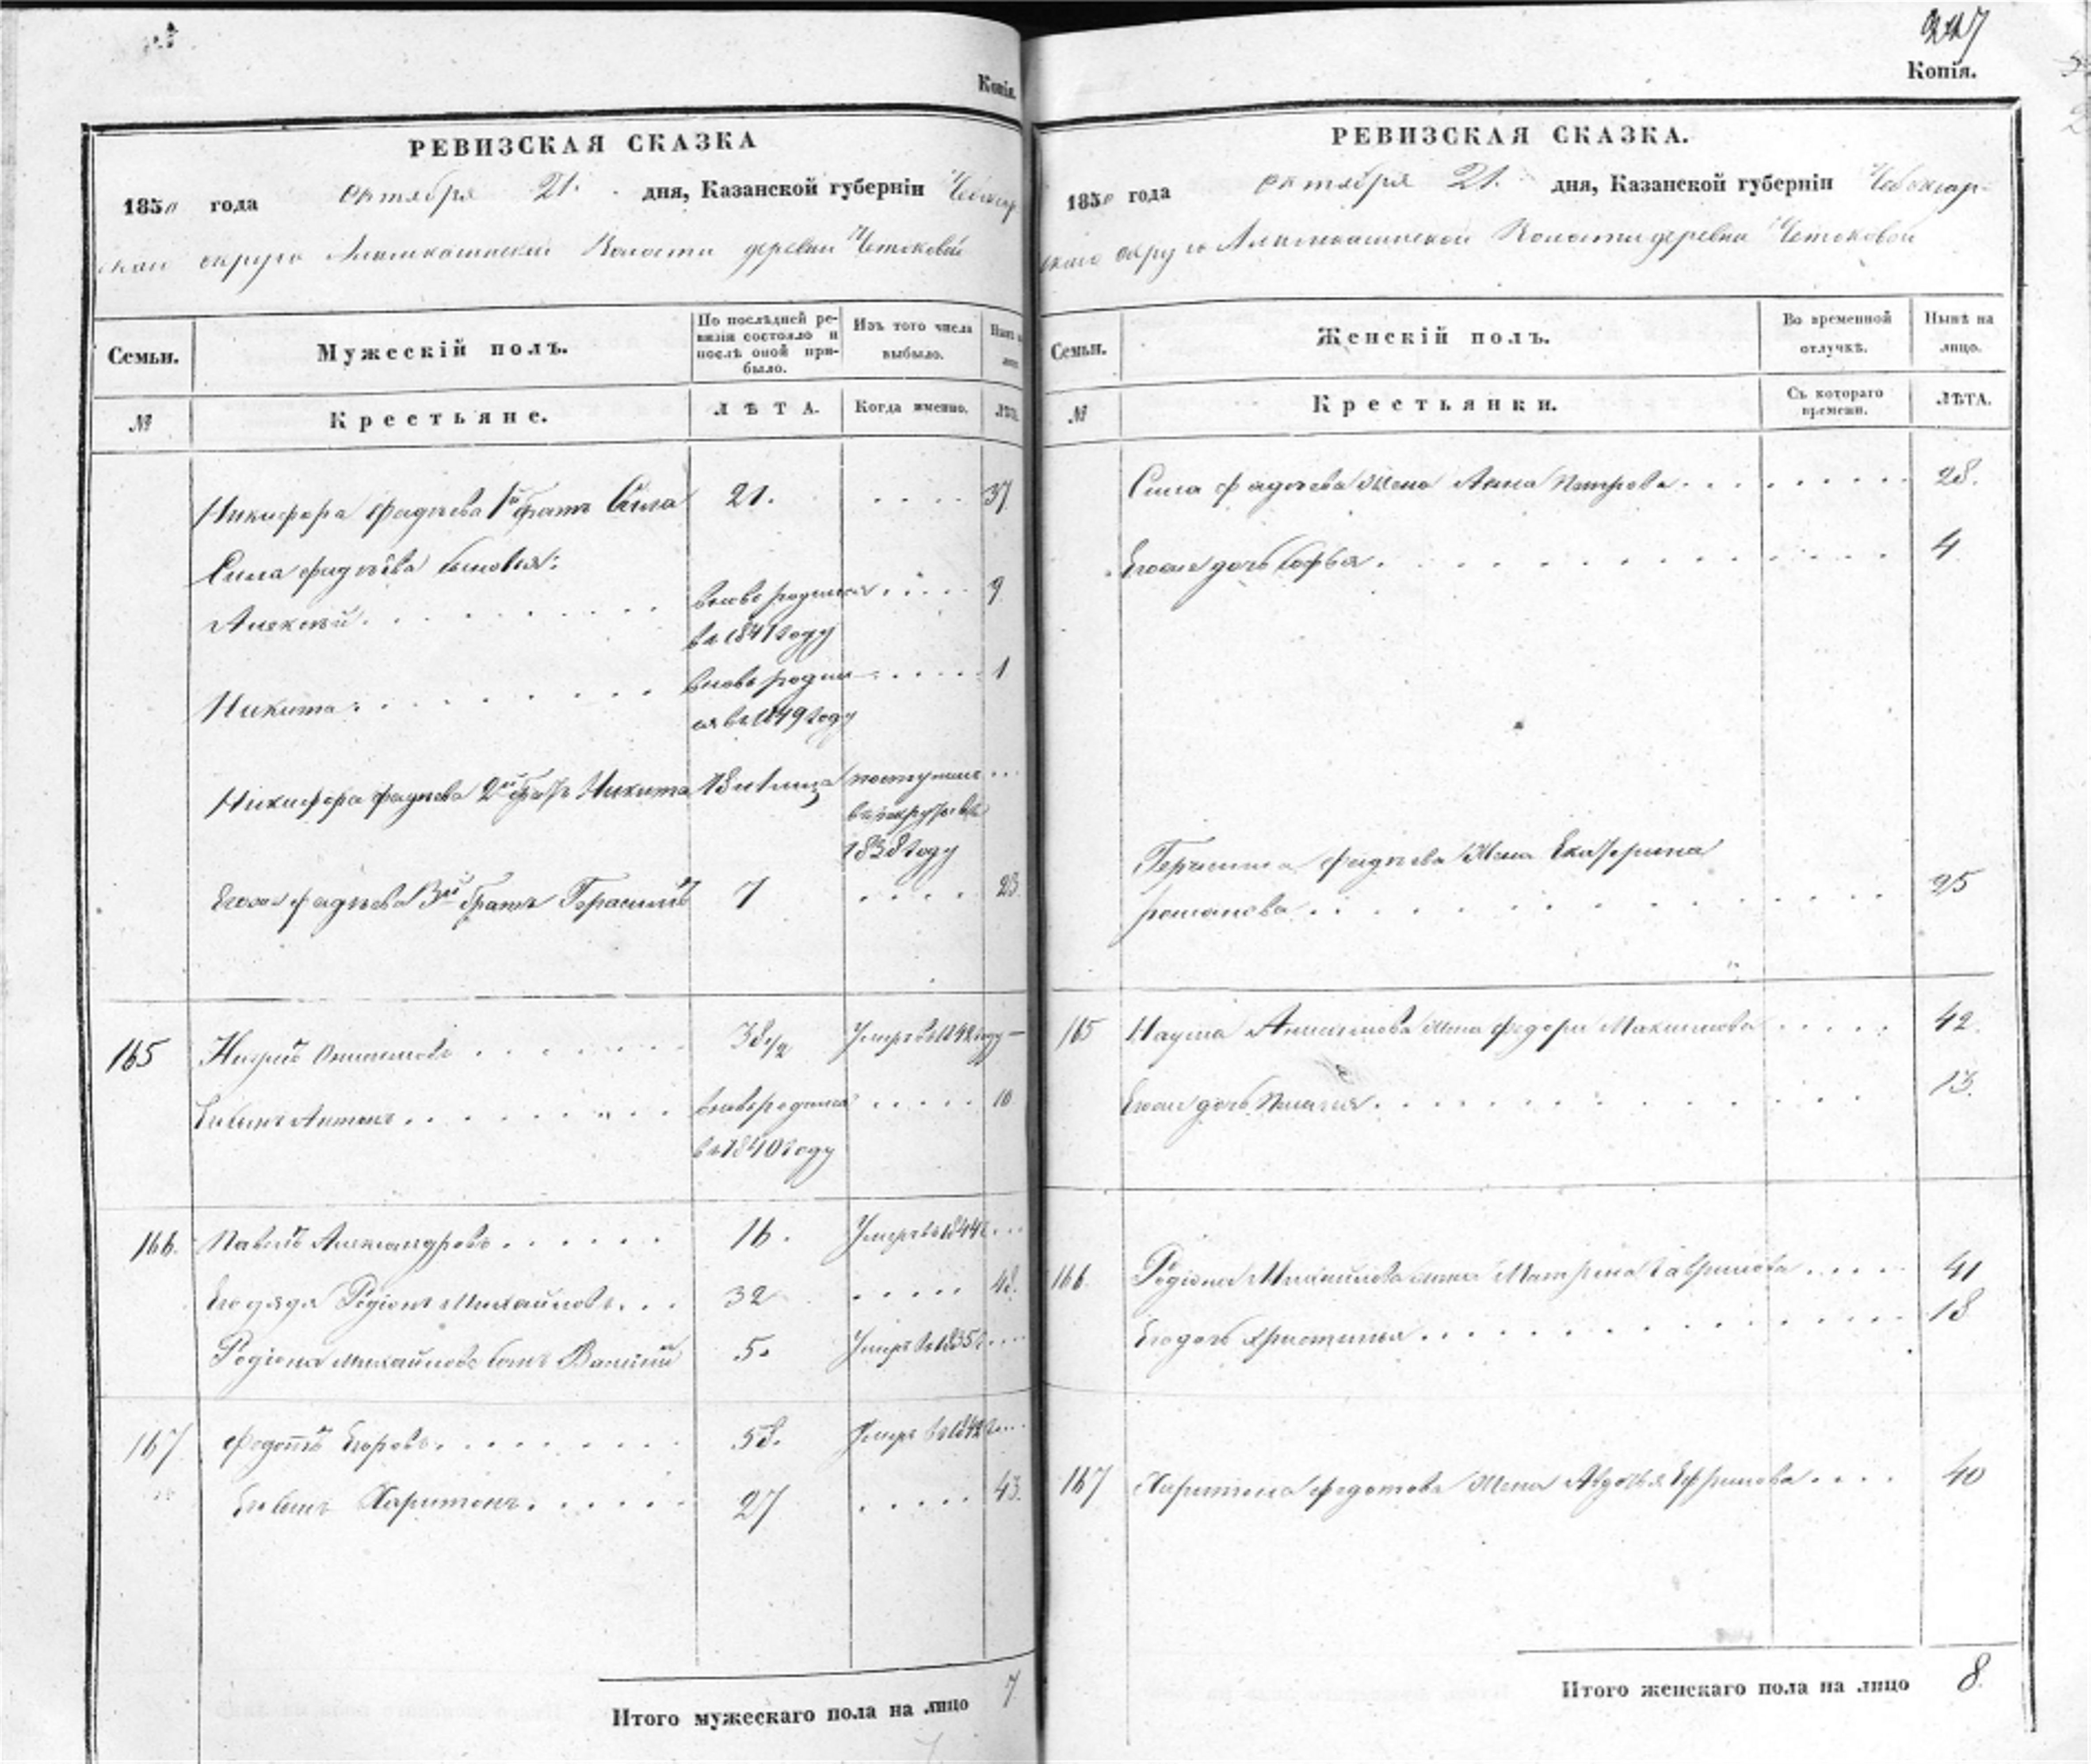 Копія.
РЕВИЗСКАЯ СКАЗКА
1850 года октября 21. дня, Казанской губерніи Чебоксар
скаго округа волости деревни
Семьи. Мужескій полъ. По послѣдней ревизіи состояло и послѣ оной прибыло. Изъ того числа выбыло. Нынѣ на лицо
№ Крестьяне. ЛѢТА. Когда именно. ЛѢТА
Никифора Фадѣева 1й братъ Сила 21. 37.
Сила Фадѣева сыновья:
Алексѣй вновь родился 9
въ 1841 году
Никита вновь родил 1
ся въ 1849 году
Никифора Фадѣева 2й братъ Никита поступилъ
въ рекруты въ
1838 году
Егоже Фадѣева 3й братъ Герасимъ 7 23.
165 38 1/2 Умеръ въ 1842 году
Егосынъ Антонъ вновь родился 10
въ 1840 году
166. Павелъ Александровъ 16. Умеръ въ 1844 г
Его дядя Родіонъ Михайловъ 32 48.
Родіона Михайлова сынъ Василій 5. Умеръ въ 1835 г
167. Федотъ Егоровъ 58. Умеръ въ 1842 г
Егосынъ Харитонъ 27 43.
Итого мужескаго пола на лицо 7
227
Копія.
РЕВИЗСКАЯ СКАЗКА.
1850 года октября 21. дня, Казанской губерніи Чебоксар-
скаго округа волости деревни
Семьи. Женскій полъ. Во временной отлучкѣ. Нынѣ на лицо.
№ Крестьянки. Съ котораго времени. ЛѢТА.
Сила Фадѣева жена Анна Петрова 28.
Егоже дочь Софья 4
Герасима Фадѣева жена Екатерина
романова 25
165 Наума жена Федора Максимова 42.
Егоже дочь Пелагея 13.
166. Родіона Михайлова жена Матрена Гаврилова 41
Егодочь Христинья 18
167 Харитона Федотова жена Авдотья Ефримова 40
Итого женскаго пола на лицо 8.